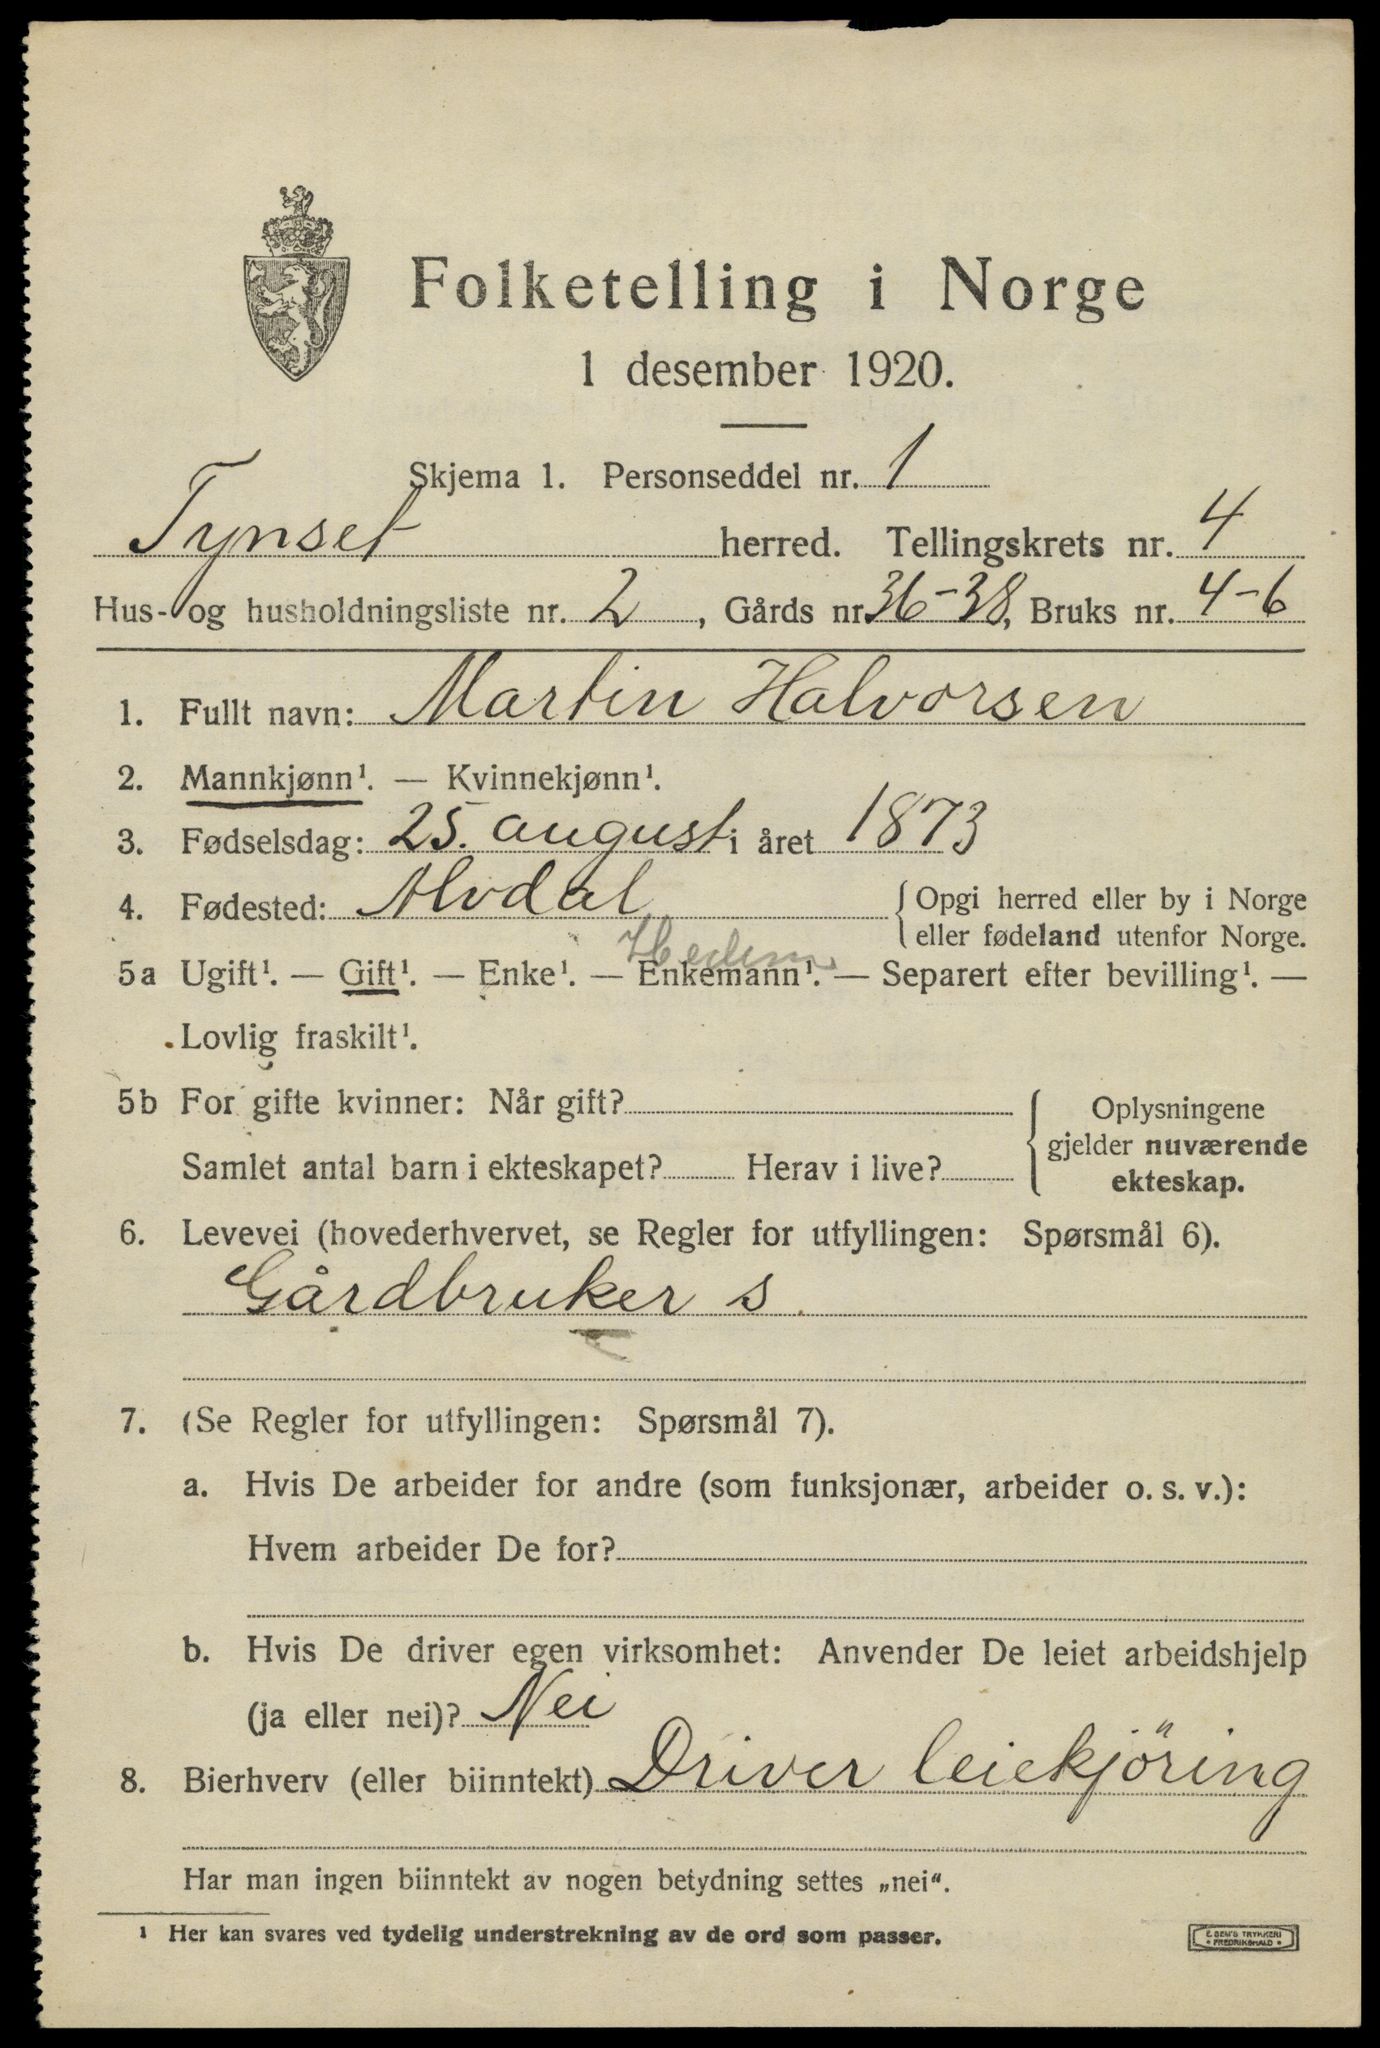 Folketelling i Norge
1 desember 1920.
Skjema 1. Personseddel nr. 1
Tynset herred. Tellingskrets nr. 4
Hus- og husholdningsliste nr. 2, Gårds nr. 36-38, Bruks nr. 4-6
1. Fullt navn: Martin Halvorsen
2. Mannkjønn¹. — Kvinnekjønn¹.
3. Fødselsdag: 25. august i året 1873
4. Fødested: Alvdal { Opgi herred eller by i Norge
eller fødeland utenfor Norge.
Hedm.
5a Ugift¹. — Gift¹. — Enke¹. — Enkemann¹. — Separert efter bevilling¹. —
Lovlig fraskilt¹.
5b For gifte kvinner: Når gift? { Oplysningene
gjelder nuværende
Samlet antal barn i ekteskapet? Herav i live?
ekteskap.
6. Levevei (hovederhvervet, se Regler for utfyllingen: Spørsmål 6).
Gårdbruker s.
7. (Se Regler for utfyllingen: Spørsmål 7).
a. Hvis De arbeider for andre (som funksjonær, arbeider o. s. v.):
Hvem arbeider De for?
b. Hvis De driver egen virksomhet: Anvender De leiet arbeidshjelp
(ja eller nei)? Nei
8. Bierhverv (eller biinntekt) Driver leiekjöring
Har man ingen biinntekt av nogen betydning settes „nei“.
¹ Her kan svares ved tydelig understrekning av de ord som passer.
E. SEM'S TRYKKERI
• FREDRIKSHALD •